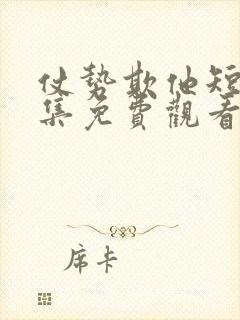 仗勢欺他短
集免費觀看
席卡